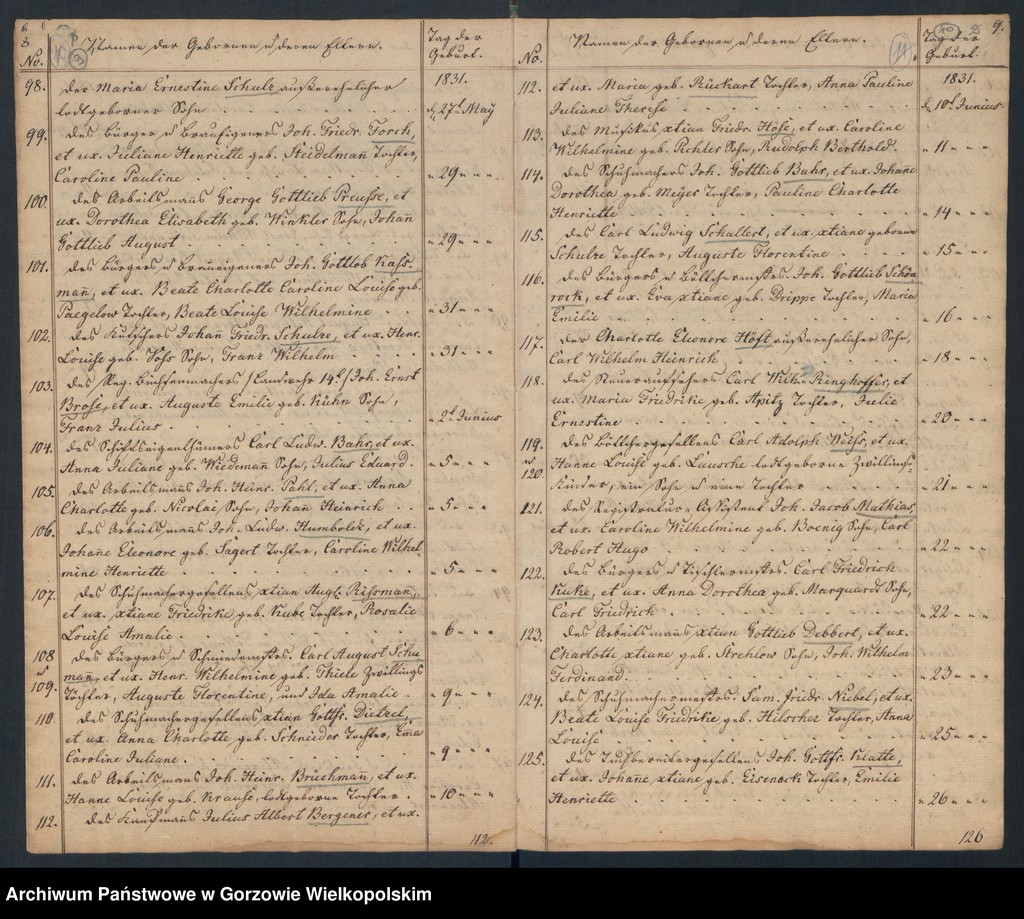 No.
Namen der Gebornen u deren Eltern.
Tag der
Geburt.
1831.
98.
der Maria Ernestine Schulz außerehelicher
todtgeborner Sohn
d. 27t May
99.
des Bürger u Braueigeners Joh. Friedr. Forch,
et ux. Juliane Henriette geb. Steidelman̄ Tochter,
Caroline Pauline
" 29 " " "
100.
des Arbeitsman̄s George Gottlieb Preuße, et
ux. Dorothea Elisabeth geb. Winkler Sohn, Johan̄
Gottlieb August
" 29 " " "
101.
des Bürgers u Braueigeners Joh. Gottlob Kaß-
man̄, et ux. Beate Charlotte Caroline Louise geb.
Paegelow Tochter, Beate Louise Wilhelmine
" 31 " " "
102.
des Kutschers Johan̄ Friedr. Schulze, et ux. Henr.
Louise geb. Voß Sohn, Franz Wilhelm
" 31 " " "
103.
des Reg. Büchsenmachers /Landwehr 14t/ Joh. Ernst
Brose, et ux. Auguste Emilie geb. Kühn Sohn,
Franz Julius
" 2t Junius
104.
des Schiffseigenthümers Carl Ludw. Bahr, et ux.
Anna Juliane geb. Wiedeman̄ Sohn, Julius Eduard.
" 5 " " "
105.
des Arbeitsman̄s Joh. Heinr. Pahl, et ux. Anna
Charlotte geb. Nicolai, Sohn, Johan̄ Heinrich
" 5 " " "
106.
des Arbeitsman̄s Joh. Ludw. Humboldt, et ux.
Johan̄e Eleonore geb. Sagert Tochter, Caroline Wilhel-
mine Henriette
" 5 " " "
107.
des Schuhmachergesellens xtian Augt. Rißman̄,
et ux. xtiane Friedrike geb. Kube Tochter, Rosalie
Louise Amalie
" 6 " " "
108
u
109.
des Bürgers u Schmiedemstrs. Carl August Schu
man̄, et ux. Henr. Wilhelmine geb. Thiele Zwillings
Töchter, Auguste Florentine, und Ida Amalie
" 9 " " "
110.
des Schuhmachergesellens xtian Gottfr. Dietzel,
et ux. Anna Charlotte geb. Schneider Tochter, Em̄a
Caroline Juliane
" 9 " " "
111.
des Arbeitsmans Joh. Heinr. Brüchman̄, et ux.
Hanne Louise geb. Krause, todtgeborne Tochter
" 10 " " "
112.
des Kaufman̄s Julius Albert Bergener, et ux.
112.
9.
No.
Namen der Gebornen u deren Eltern.
Tag der
Geburt.
1831.
112.
et ux. Maria geb. Rückart Tochter, Anna Pauline
Juliane Therese
d. 10t Junius
113.
des Musikus xtian Friedr. Höse, et ux. Caroline
Wilhelmine geb. Richter Sohn, Rudolph Berthold.
" 11 " " "
114.
des Schuhmachers Joh. Gottlieb Bahr, et ux. Johan̄e
Dorothea geb. Meyer Tochter, Pauline Charlotte
Henriette
" 14 " " "
115.
des Carl Ludwig Schallert, et ux. xtiane geborne
Schulze Tochter, Auguste Florentine
" 15 " " "
116.
des Bürgers u Böttchermstrs. Joh. Gottlieb Schön
rock, et ux. Eva xtiane geb. Drippe Tochter, Maria
Emilie
" 16 " " "
117.
der Charlotte Eleonore Höft außerehelicher Sohn,
Carl Wilhelm Heinrich
" 18 " " "
118.
des Steueraufsehers Carl Wilh. Ringhoffer, et
ux. Maria Friedrike geb. Apitz Tochter, Julie
Ernestine
" 20 " " "
119.
u
120.
des Böttchergesellens Carl Adolph Weiß, et ux.
Hanne Louise geb. Lausche todtgeborne Zwillings-
Kinder, ein Sohn u eine Tochter
" 21 " " "
121.
des Registratur-Assistent Joh. Jacob Mathias,
et ux. Caroline Wilhelmine geb. Boenig Sohn, Carl
Robert Hugo
" 22 " " "
122.
des Bürgers u Tischlermstrs. Carl Friedrich
Kuke, et ux. Anna Dorothea geb. Marquardt Sohn,
Carl Friedrich
" 22 " " "
123.
des Arbeitsman̄s xtian Gottlieb Debbert, et ux.
Charlotte xtiane geb. Strehlow Sohn, Joh. Wilhelm
Ferdinand
" 23 " " "
124.
des Schuhmachermstrs. Sam. Friedr. Nubel, et ux.
Beate Louise Friedrike geb. Hilscher Tochter, Anna
Louise
" 25 " " "
125.
des Tuchbereitergesellens Joh. Gottfr. Klatte,
et ux. Johan̄e xtiane geb. Eisenack Tochter, Emilie
Henriette
" 26 " " "
126
Archiwum Państwowe w Gorzowie Wielkopolskim